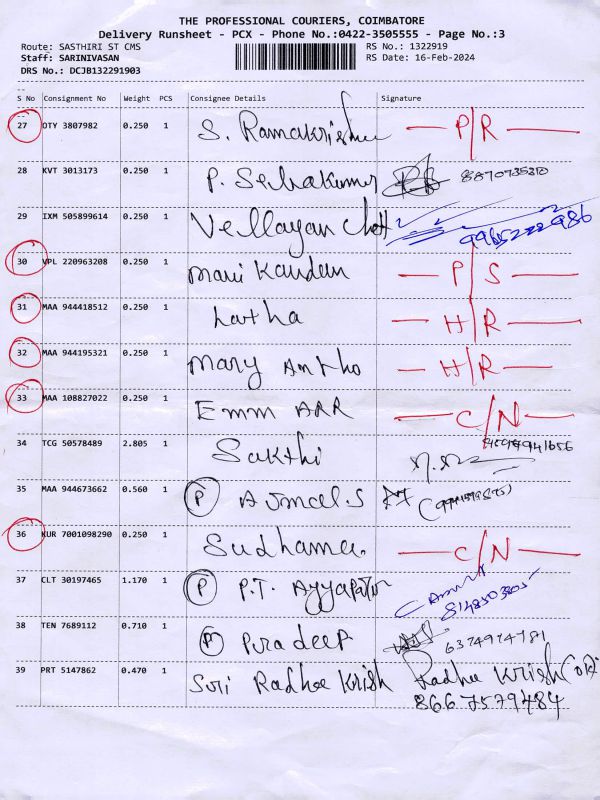 THE PROFESSIONAL COURIERS, COIMBATORE
Delivery Runsheet - PCX - Phone No.:0422-3505555 - Page No.:3
Route: SASTHIRI ST CMS RS No.: 1322919
Staff: SARINIVASAN RS Date: 16-Feb-2024
DRS No.: DCJB132291903
S No Consignment No Weight PCS Consignee Details Signature
27 OTY 3807982 0.250 1 S. Ramakrishna P/R
28 KVT 3013173 0.250 1 P. Selvakumar 8870735310
29 IXM 505899614 0.250 1 Vellayan Chett
30 VPL 220963208 0.250 1 Mani Kandan P/S
31 MAA 944418512 0.250 1 Latha H/R
32 MAA 944195321 0.250 1 Mary Antho H/R
33 MAA 108827022 0.250 1 Emm ARR C/N
34 TCG 50578489 2.805 1 Sakthi
35 MAA 944673662 0.560 1 P Ajmal S
36 KUR 7001098290 0.250 1 Sudhama. C/N
37 CLT 30197465 1.170 1 P P.T. Ayyapatur
38 TEN 7689112 0.710 1 P Pradeep 6374974781
39 PRT 5147862 0.470 1 Sri Radhe Krish Radhe Krish
866 7579484